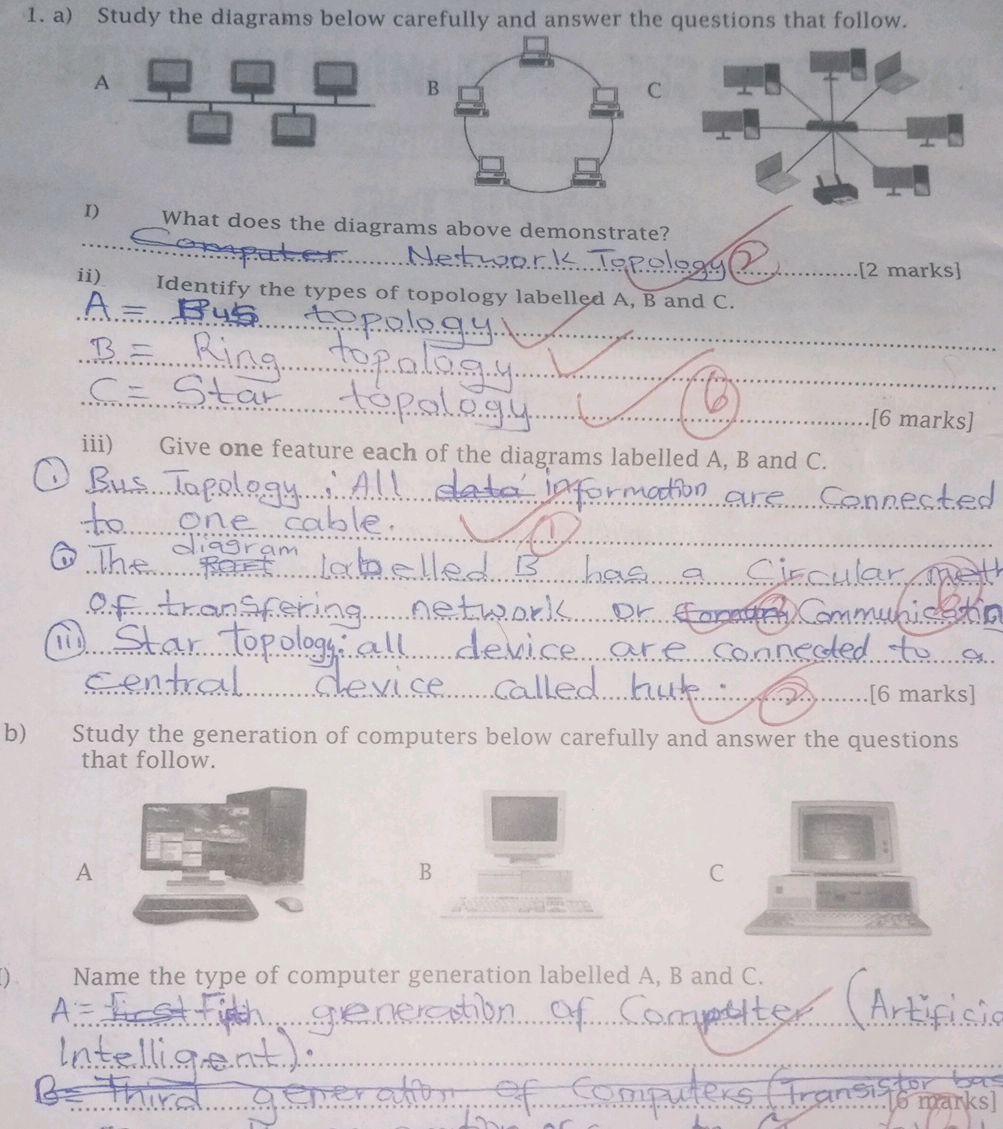 1. a) Study the diagrams below carefully and answer the questions that follow.
A B C
I) What does the diagrams above demonstrate?
Computer Network Topology 2 [2 marks]
ii) Identify the types of topology labelled A, B and C.
A = Bus topology
B = Ring topology
C = Star topology 6 [6 marks]
iii) Give one feature each of the diagrams labelled A, B and C.
(i) Bus Topology : All data information are connected
to one cable. 1
diagram
(ii) The labelled B has a Circular meth
of transfering network or Communicatio
(iii) Star topology: all device are connected to a
central device called hub. 2 [6 marks]
b) Study the generation of computers below carefully and answer the questions
that follow.
A B C
Name the type of computer generation labelled A, B and C.
A = first Fifth generation of Computer (Artificia
Intelligent).
B = Third generation of Computers (Transistor bas
[6 marks]